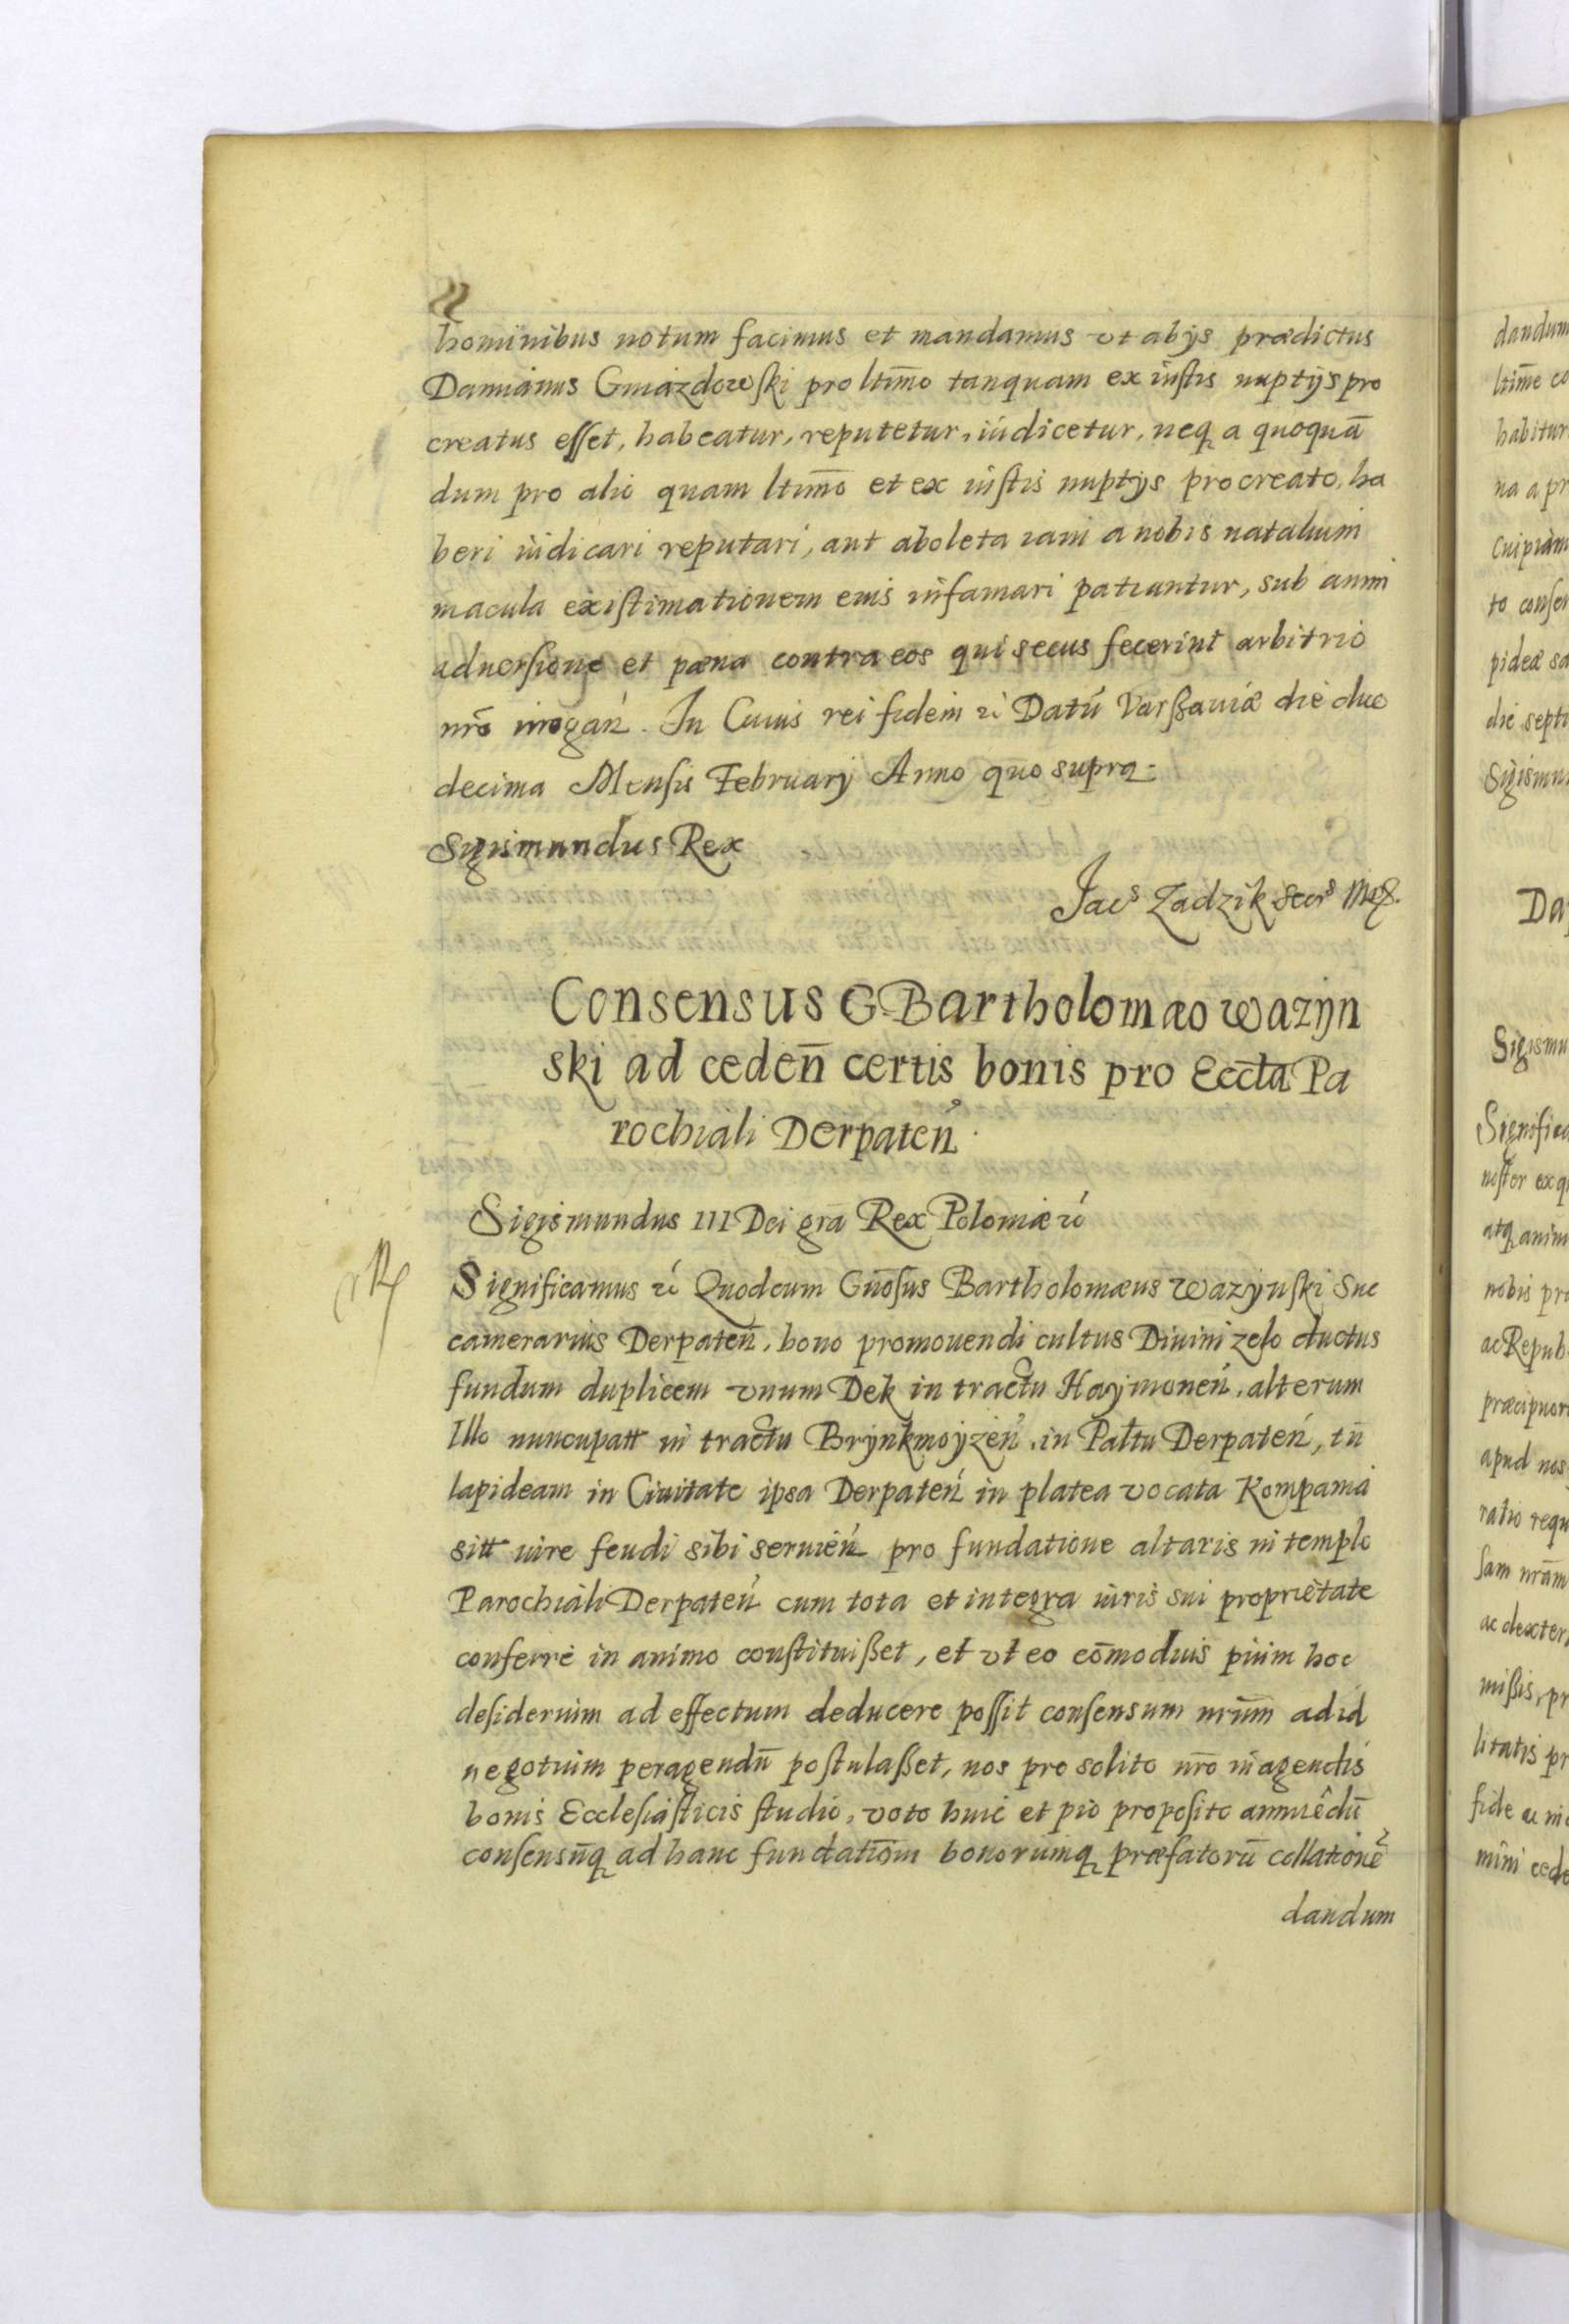 hominibus notum facimus et mandamus vt abijs prædictus
Damianus Gniazdowski pro ltim̄o tanquam ex iustis nuptijs pro
creatus esset, habeatur, reputetur, iudicetur, neq₃ a quoquā
dum pro alio quam ltim̄o et ex iustis nuptijs procreato, ha
beri iudicari reputari, aut aboleta iam a nobis natalium
macula existimationem eius infamari patiantur, sub anim
aduersione et pæna contra eos qui secus fecerint arbitrio
nrō irrogań. In Cuius rei fidem rć Datū Varssauiæ die duo
decima Mensis February Anno quo supra.
Sigismundus Rex
Jacs Zadzik Secrs Mtis.
Consensus G. Bartholomæo Wazijn
ski ad ceden̄ certis bonis pro Eccta Pa
rochiali Derpateń.
Sigismundus III Dei grā Rex Poloniæ rć
Significamus rć Quod cum Gn̄osus Bartholomæus Wazijnski Suc
camerarius Derpateń, bono promouendi cultus Diuini zelo ductus
fundum duplicem vnum Dek in tractu Haymoneń, alterum
Illo nuncupatt in tractu Brynkmoyzeń, in Pałtu Derpateń, tū
lapideam in Ciuitate ipsa Derpateń in platea vocata Kompania
sitt iure feudi sibi seruień pro fundatione altaris in templo
Parochiali Derpateń cum tota et integra iuris sui proprietate
conferre in animo constituisset, et vt eo cōmodius pium hoc
desiderium ad effectum deducere possit consensum nrūm ad id
negotium peragendū postulasset, nos pro solito nrō in agendis
bonis Ecclesiasticis studio, voto huic et pio proposito annuēdū
consensūq₃ ad hanc fundatiōm bonorumq₃ præfatorū collationē
dandum
dandum
ltim̄e co
habitur
na a pr
cuipiam
to conse
pideæ sa
die septi
Sigismu
Da
Sigismu
Significa
noster ex q
atq₃ anim
nobis pr
ac Repub
præcipuor
apud nos
ratio requ
sam nrām
ac dexter
missis, pr
litatis pr
mini cede